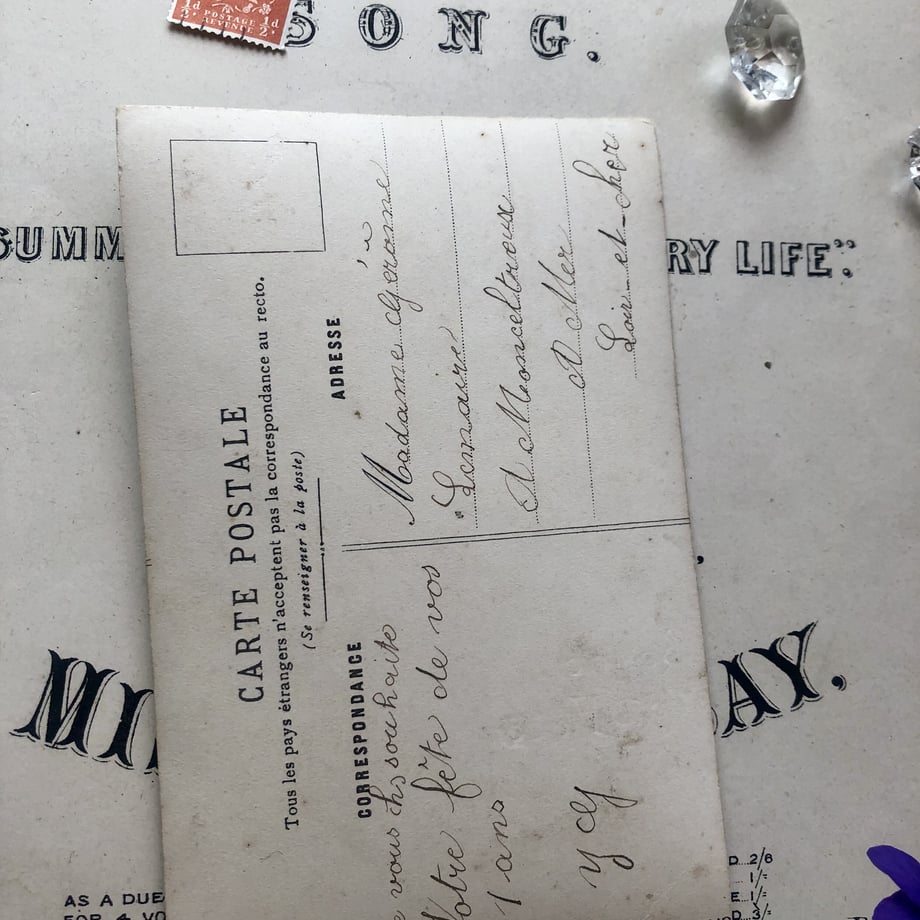 ½d POSTAGE ½d
REVENUE
SONG.
SUMM
RY LIFE".
MI
AY,
CARTE POSTALE
Tous les pays étrangers n'acceptent pas la correspondance au recto.
(Se renseigner à la poste)
CORRESPONDANCE
vous souhaite
Votre fête de vos
1 ans
y G
ADRESSE
Madame Gérome
Lemaire
A
A Mer
Loir-et-Cher
AS A DUE
FOR 4 VO
D 2/6
1/-
E 1/-
D 3/-